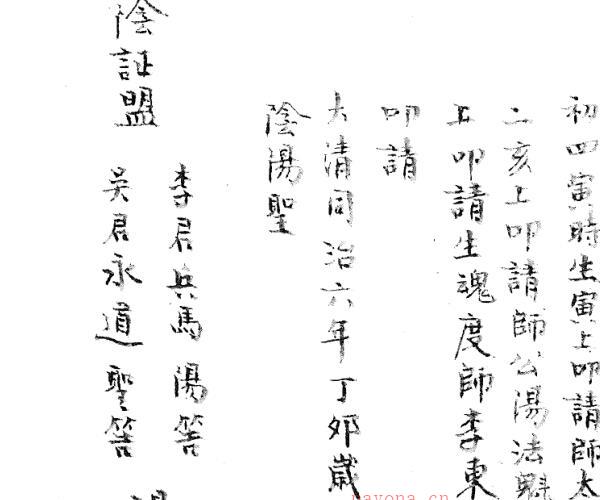 初四寅時生寅上叩請師太
二亥上叩請師公陽法魁
五叩請生魂度師李東
叩請
大清同治六年丁卯歲
陰陽聖
李君兵馬陽筶
吳君永道聖筶
陰証盟
nayona.cn